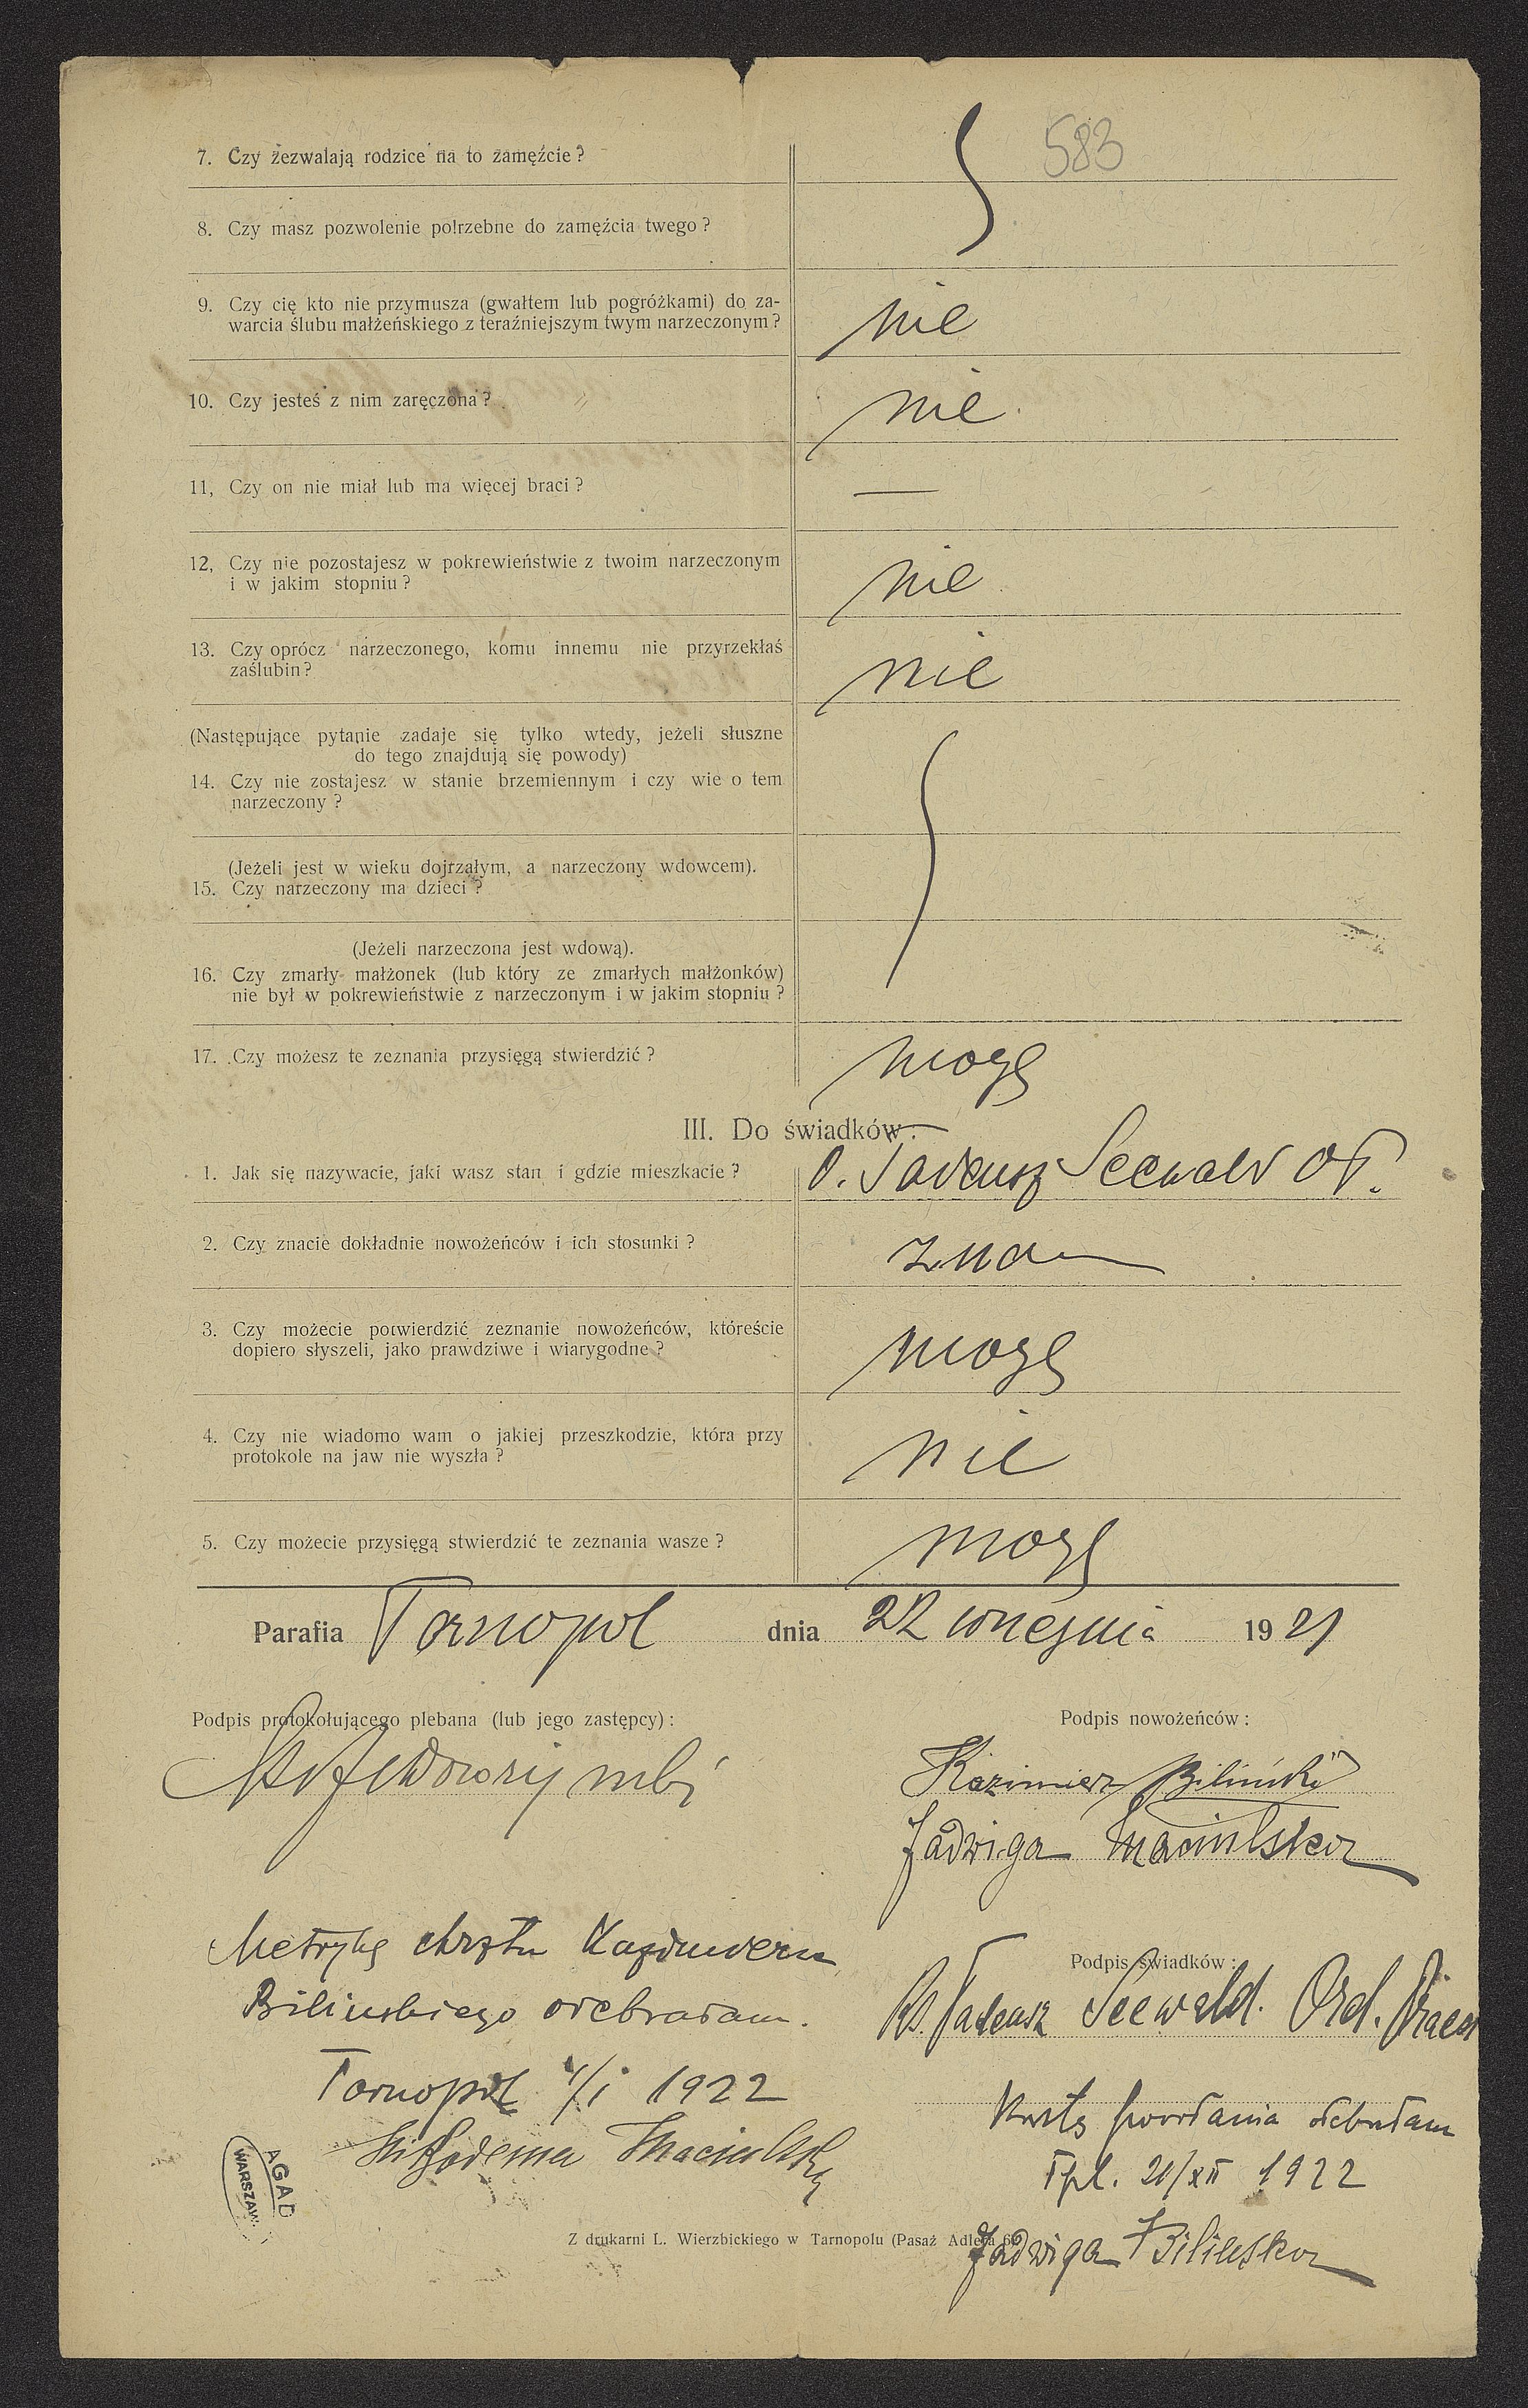 583
7. Czy zezwalają rodzice na to zamęźcie?
8. Czy masz pozwolenie potrzebne do zamęźcia twego?
9. Czy cię kto nie przymusza (gwałtem lub pogróżkami) do za-
warcia ślubu małżeńskiego z teraźniejszym twym narzeczonym?
nie
10. Czy jesteś z nim zaręczona?
nie
11, Czy on nie miał lub ma więcej braci?
—
12, Czy nie pozostajesz w pokrewieństwie z twoim narzeczonym
i w jakim stopniu?
nie
13. Czy oprócz narzeczonego, komu innemu nie przyrzekłaś
zaślubin?
nie
(Następujące pytanie zadaje się tylko wtedy, jeżeli słuszne
do tego znajdują się powody)
14. Czy nie zostajesz w stanie brzemiennym i czy wie o tem
narzeczony?
(Jeżeli jest w wieku dojrzałym, a narzeczony wdowcem).
15. Czy narzeczony ma dzieci?
(Jeżeli narzeczona jest wdową).
16. Czy zmarły małżonek (lub który ze zmarłych małżonków)
nie był w pokrewieństwie z narzeczonym i w jakim stopniu?
17. Czy możesz te zeznania przysięgą stwierdzić?
mogę
III. Do świadków:
1. Jak się nazywacie, jaki wasz stan i gdzie mieszkacie?
O. Tadeusz Seewald OP.
2. Czy znacie dokładnie nowożeńców i ich stosunki?
znam
3. Czy możecie potwierdzić zeznanie nowożeńców, któreście
dopiero słyszeli, jako prawdziwe i wiarygodne?
mogę
4. Czy nie wiadomo wam o jakiej przeszkodzie, która przy
protokole na jaw nie wyszła?
nie
5. Czy możecie przysięgą stwierdzić te zeznania wasze?
mogę
Parafia Tarnopol dnia 22 września 1921
Podpis protokołującego plebana (lub jego zastępcy):
Podpis nowożeńców:
Kazimierz Biliński
Jadwiga
Metrykę chrztu Kazimierza
Bilinskiego odebrałam.
Tarnopol /I 1922
Podpis świadków:
Ks. Tadeusz Seewald. Ord. Praed
Kartę powołania odebrałam
Tpl. 21/XII 1922
Jadwiga Bilińska
AGAD
WARSZAW
Z drukarni L. Wierzbickiego w Tarnopolu (Pasaż Adlera